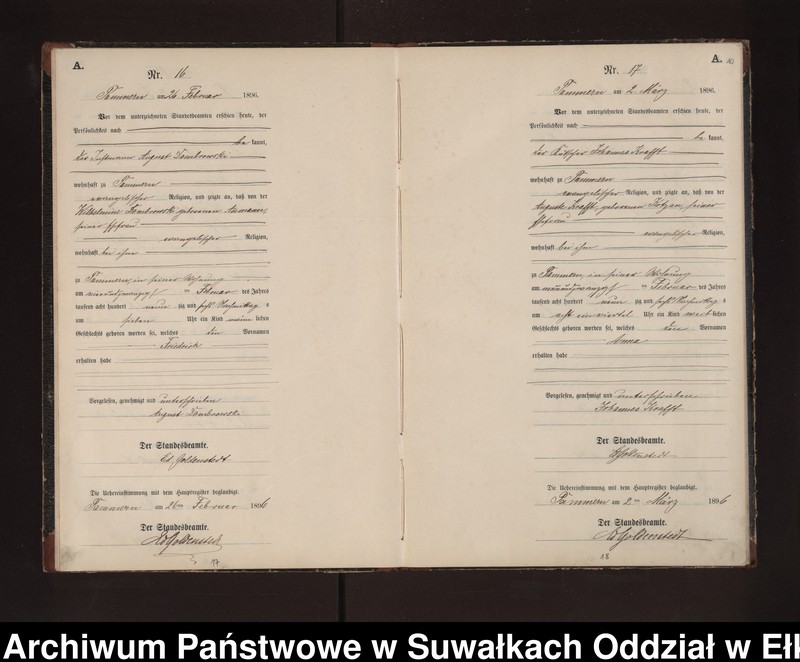 A.
Nr. 16
Pammern am 26 Februar 1896.
Vor dem unterzeichneten Standesbeamten erschien heute, der
Persönlichkeit nach
be kannt,
der August Dombrowski
wohnhaft zu Pammern
evangelischer Religion, und zeigte an, daß von der
Wilhelmine Dombrowski geborenen
seiner Ehefrau
evangelischer Religion,
wohnhaft bei ihm
zu Pammern, in seiner Wohnung
am vierundzwanzigst en Februar des Jahres
tausend acht hundert neun zig und sechs Vormittag s
um sieben Uhr ein Kind männ lichen
Geschlechts geboren worden sei, welches den Vornamen
Friedrich
erhalten habe
Vorgelesen, genehmigt und unterschrieben
August Dombrowski
Der Standesbeamte.
Goldenstedt
Die Uebereinstimmung mit dem Hauptregister beglaubigt.
Pammern am 26ten Februar 1896
Der Standesbeamte.
Goldenstedt
17
A.
Nr. 17
Pammern am 2 März 1896.
Vor dem unterzeichneten Standesbeamten erschien heute, der
Persönlichkeit nach
be kannt,
der Kutscher Johannes Krafft
wohnhaft zu Pammern
evangelischer Religion, und zeigte an, daß von der
Auguste Krafft, geborenen seiner
Ehefrau
evangelischer Religion,
wohnhaft bei ihm
zu Pammern, in seiner Wohnung
am neunundzwanzigst en Februar des Jahres
tausend acht hundert neun zig und sechs Vormittag s
um acht einviertel Uhr ein Kind weib lichen
Geschlechts geboren worden sei, welches den Vornamen
Anna
erhalten habe
Vorgelesen, genehmigt und unterschrieben
Johannes Krafft
Der Standesbeamte.
Goldenstedt
Die Uebereinstimmung mit dem Hauptregister beglaubigt.
Pammern am 2ten März 1896
Der Standesbeamte.
Goldenstedt
18
Archiwum Państwowe w Suwałkach Oddział w Ełk